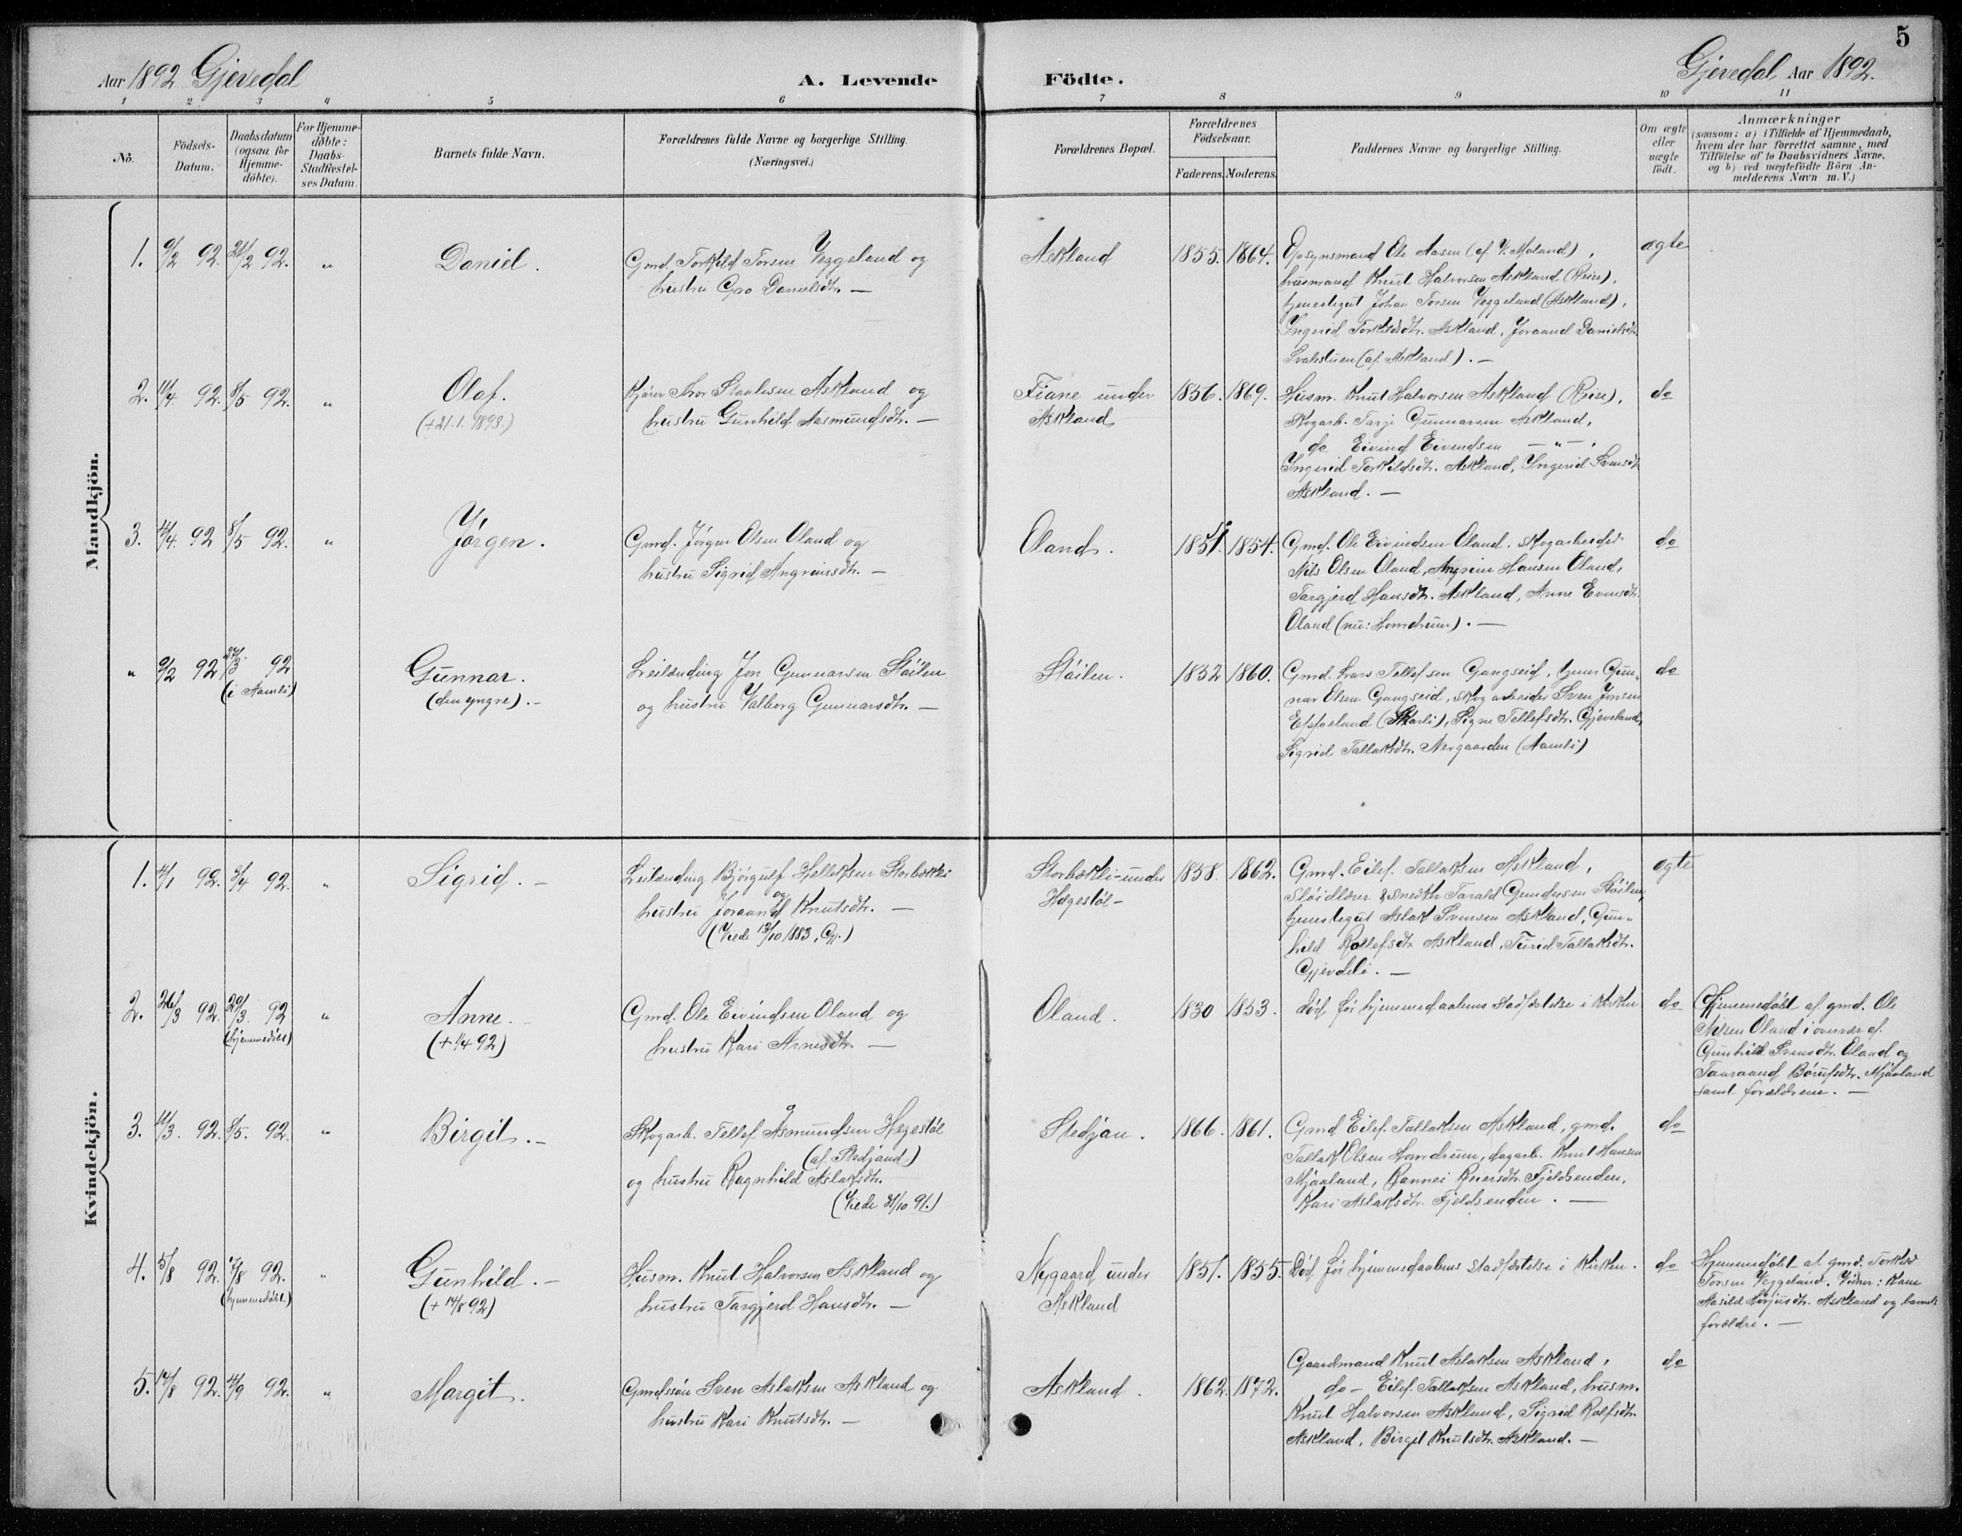 5
Aar 1892 Gjevedal
A. Levende Födte.
Gjevedal Aar 1892.
1 2 3 4 5 6 7 8 9 10 11
No.
Födsels-Datum.
Daabsdatum (ogsaa for Hjemme-döbte).
For Hjemme-döbte: Daabs-Stadfæstel-ses Datum
Barnets fulde Navn.
Forældrenes fulde Navne og borgerlige Stilling.
(Næringsvei.)
Forældrenes Bopæl.
Forældrenes Födselsaar.
Faderens. Moderens.
Faddernes Navne og borgerlige Stilling.
Om ægte eller uægte födt.
Anmærkninger
(saasom: a) i Tilfælde af Hjemmedaab,
hvem der har forrettet samme, med
Tilföielse af to Daabsvidners Navne,
og b) ved uægtefödte Börn An-
melderens Navn m. V.)
Mandkjön.
1. 9/2 92. 21/2 92. " Daniel.
Gmd. Torkild Torsen Veggeland og
hustru Gro Danielsdtr. —
Askland 1855. 1864.
Opsynsmand Ole Aasen (af V. Moland),
husmand Knut Halvorsen Askland (Rise),
tjenestegut Johan Torsen Veggeland (Askland),
Yngerid Torkildsdtr. Askland, Joraand Danielsdtr.
Svalestuen (af Askland). —
ægte
2. 11/4 92. 8/5 92. " Olaf.
(+21.1.1893.)
Kjører Thor Staalesen Askland og
hustru Gunhild Aasmundsdtr. —
Fiane under
Askland
1856. 1869.
Husm. Knut Halvorsen Askland (Rise),
Skogarb. Tarje Gunnarsen Askland,
do Eivind Eivindsen — " —,
Yngerid Torkildsdtr. Askland, Yngerid Svensdtr.
Askland. —
do
3. 14/4 92 8/5 92. " Jørgen.
Gmd. Jørgen Olsen Oland og
hustru Sigrid Angrimsdtr. —
Oland. 1851. 1854.
Gmd. Ole Eivindsen Oland, skogarbeider
Nils Olsen Oland, Angrim Hansen Oland,
Targjerd Hansdtr. Askland, Anne Evensdtr.
Oland (nu: Homdrum). —
do
" 9/2 92 27/3 92
(i Aamli)
Gunnar.
(den yngre). —
Leilænding Jon Gunnarsen Støilen
og hustru Valborg Gunnarsdtr. —
Støilen. 1852 1860.
Gmd. Lars Tellefsen Gangseid, Gun-
nar Olsen Gangseid, skogarbeider Sven Jonsen
Eppeland (Skarli), Signe Tellefsdtr. Gjeveland,
Sigrid Tallaksdtr. Nergaarden (Aamli)
do
Kvindekjön.
1. 4/1 92. 3/4 92. " Sigrid. —
Leilænding Bjørgulf Hellaksen Storbækki
og
hustru Joraand Knutsdtr. —
(Viede 13/10 1883, Gj.)
Storbækki under
Hegestøl —
1858. 1862.
Gmd. Eilef Tallaksen Askland,
Sløidlærer & snedker Tarald Gundersen Støilen,
tjenestegut Aslak Svensen Askland, Gun-
hild Rollefsdtr. Askland, Turid Tallaksdtr.
Gjevdeli. —
ægte
2. 26/3 92. 29/3 92
(hjemmedøbt)
" Anne. —
(+ 1/4 92)
Gmd. Ole Eivindsen Oland og
hustru Kari Arnesdtr. —
Oland. 1830 1853.
Død før hjemmedaabens stadfæstelse i kirken
do
Hjemmedøbt af gmd. Ole
Nilsen Oland i overvær af
Gunhild Svensdtr. Oland og
Taaraand Børufsdtr. Mjaaland
samt forældrene. —
3. 11/3. 92. 8/5. 92. " Birgit. —
Skogarb. Tellef Asmundsen Hegestøl
(af Stedjan)
og hustru Ragnhild Aslaksdtr.
(Viede 31/10 91.)
Stedjan. 1866. 1861.
Gmd. Eilef Tallaksen Askland, gmd.
Tallak Olsen Homdrum, dagarb. Knut Hansen
Mjaaland, Rannei Reiersdtr. Fjeldsenden,
Kari Aslaksdtr. Fjeldsenden. —
do
4. 5/8 92. 7/8 92.
(hjemmedøbt)
" Gunhild. —
(+ 14/8 92)
Husm. Knut Halvorsen Askland og
hustru Targjerd Hansdtr. —
Nygaard under
Askland
1851. 1855.
Død før hjemmedaabens stadfæstelse i kirken.
do
Hjemmedøbt af gmd. Torkild
Torsen Veggeland. Vidner: Kone
Aasild Askland og barnets
forældre. —
5. 14/8 92. 4/9 92. " Margit.
Gmdssøn Sven Aslaksen Askland og
hustru Kari Knutsdtr. —
Askland. 1862. 1872.
Gaardmand Knut Aslaksen Askland,
do — Eilef Tallaksen Askland, husm.
Knut Halvorsen Askland, Sigrid Rolfsdtr.
Askland, Birgit Knutsdtr. Askland. —
do